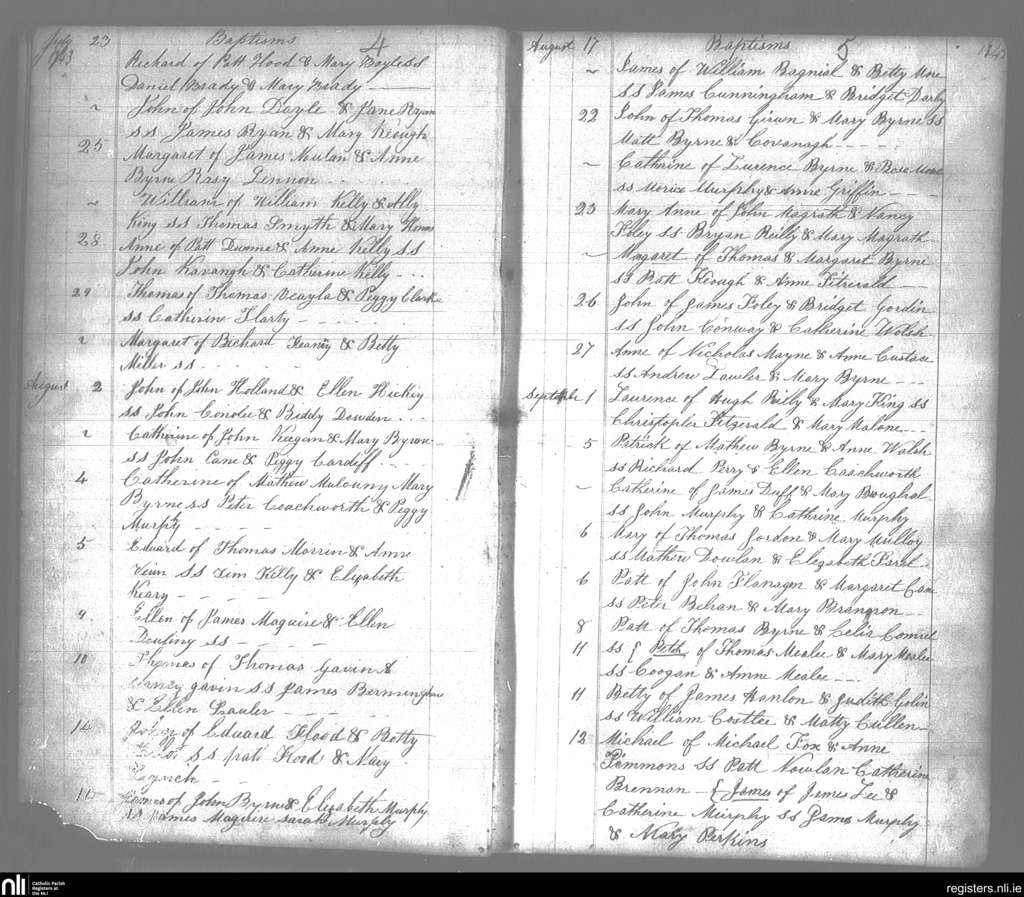 July 23 Baptisms 4
Richard of Patt Flood & Mary Boyle ss
Daniel Brady & Mary Brady
John of John Doyle & Jane Ryan
ss James Ryan & Mary Keough
25 Margaret of James Nulan & Anne
Byrne Rosy Lennon
William of William Kelly & Ally
King ss Thomas Smyth & Mary
28 Anne of Patt Dunne & Anne Kelly ss
John Kavangh & Catherine Kelly
29 Thomas of Thomas & Peggy Clark
ss Catherine Flarty
Margaret of Richard Heaney & Betty
Miller ss
August 2 John of John Holland & Ellen Hickey
ss John Conolee & Biddy Dowden
Catherine of John Keegan & Mary Byrne
ss John Cane & Peggy Cardiff
4 Catherine of Mathew Mulouny Mary
Byrne ss Peter Coachworth & Peggy
Murphy
5 Eduard of Thomas Morrin & Anne
ss Tim Kelly & Elizabeth
Keary
9 Ellen of James Maguire & Ellen
Douling ss
10 Thomas of Thomas Gavin &
gavin ss James Bermingham
& Ellen Lauler
14 of Eduard Flood & Betty
ss patt Flood & Mary
Lynch
James of John Byrne & Elizabeth Murphy
ss James Maguire Sarah Murphy
August 17 Baptisms 5
James of William Bagnial & Betty More
ss James Cunningham & Bridget Darby
22 John of Thomas Girwn & Mary Byrne ss
Matt Byrne & Covanagh
Catherine of Lurence Byrne & Rose More
ss Morice Murphy & Anne Griffin
23 Mary Anne of John Magrath & Nancy
Foley ss Bryan Reilly & Mary Magrath
Magaret of Thomas & Margaret Byrne
ss Patt Keough & Anne Fitzrald
26 John of James Foley & Bridget Gordin
ss John Conway & Catherine Wolsh
27 Anne of Nicholas Mayne & Anne Eustace
ss Andrew Lawler & Mary Byrne
September 1 Laurence of Hugh Reilly & Mary King ss
Christopher Fitzgerald & Mary Malone
5 Patrick of Mathew Byrne & Anne Walsh
ss Richard Perry & Ellen Coachworth
Catherine of James Duff & Mary Boughal
ss John Murphy & Cathrine Murphy
6 Mary of Thomas Jordon & Mary Mulloy
ss Mathew Dowlan & Elezabeth Farel
6 Patt of John Flanagn & Margaret
ss Peter Belran & Mary Brangron
8 Patt of Thomas Byrne & Celia
11 ss { Peth of Thomas Mealee & Mary Mealee
ss Coogan & Amne Mealee
11 Betty of James Hanlon & Judith Golin
ss William Costlee & Matty Cullen
12 Michael of Michael Fox & Anne
Pemmons ss Patt Nowlan Catherine
Brennan { James of James Lee &
Catherine Murphy ss James Murphy
& Mary Perkins
nli
Catholic Parish
Registers at
the NLI
registers.nli.ie